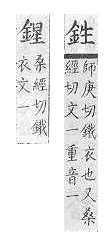 鉎
師庚切鐵衣也又桑
經切文一重音一
鍟
桑經切鐵
衣文一